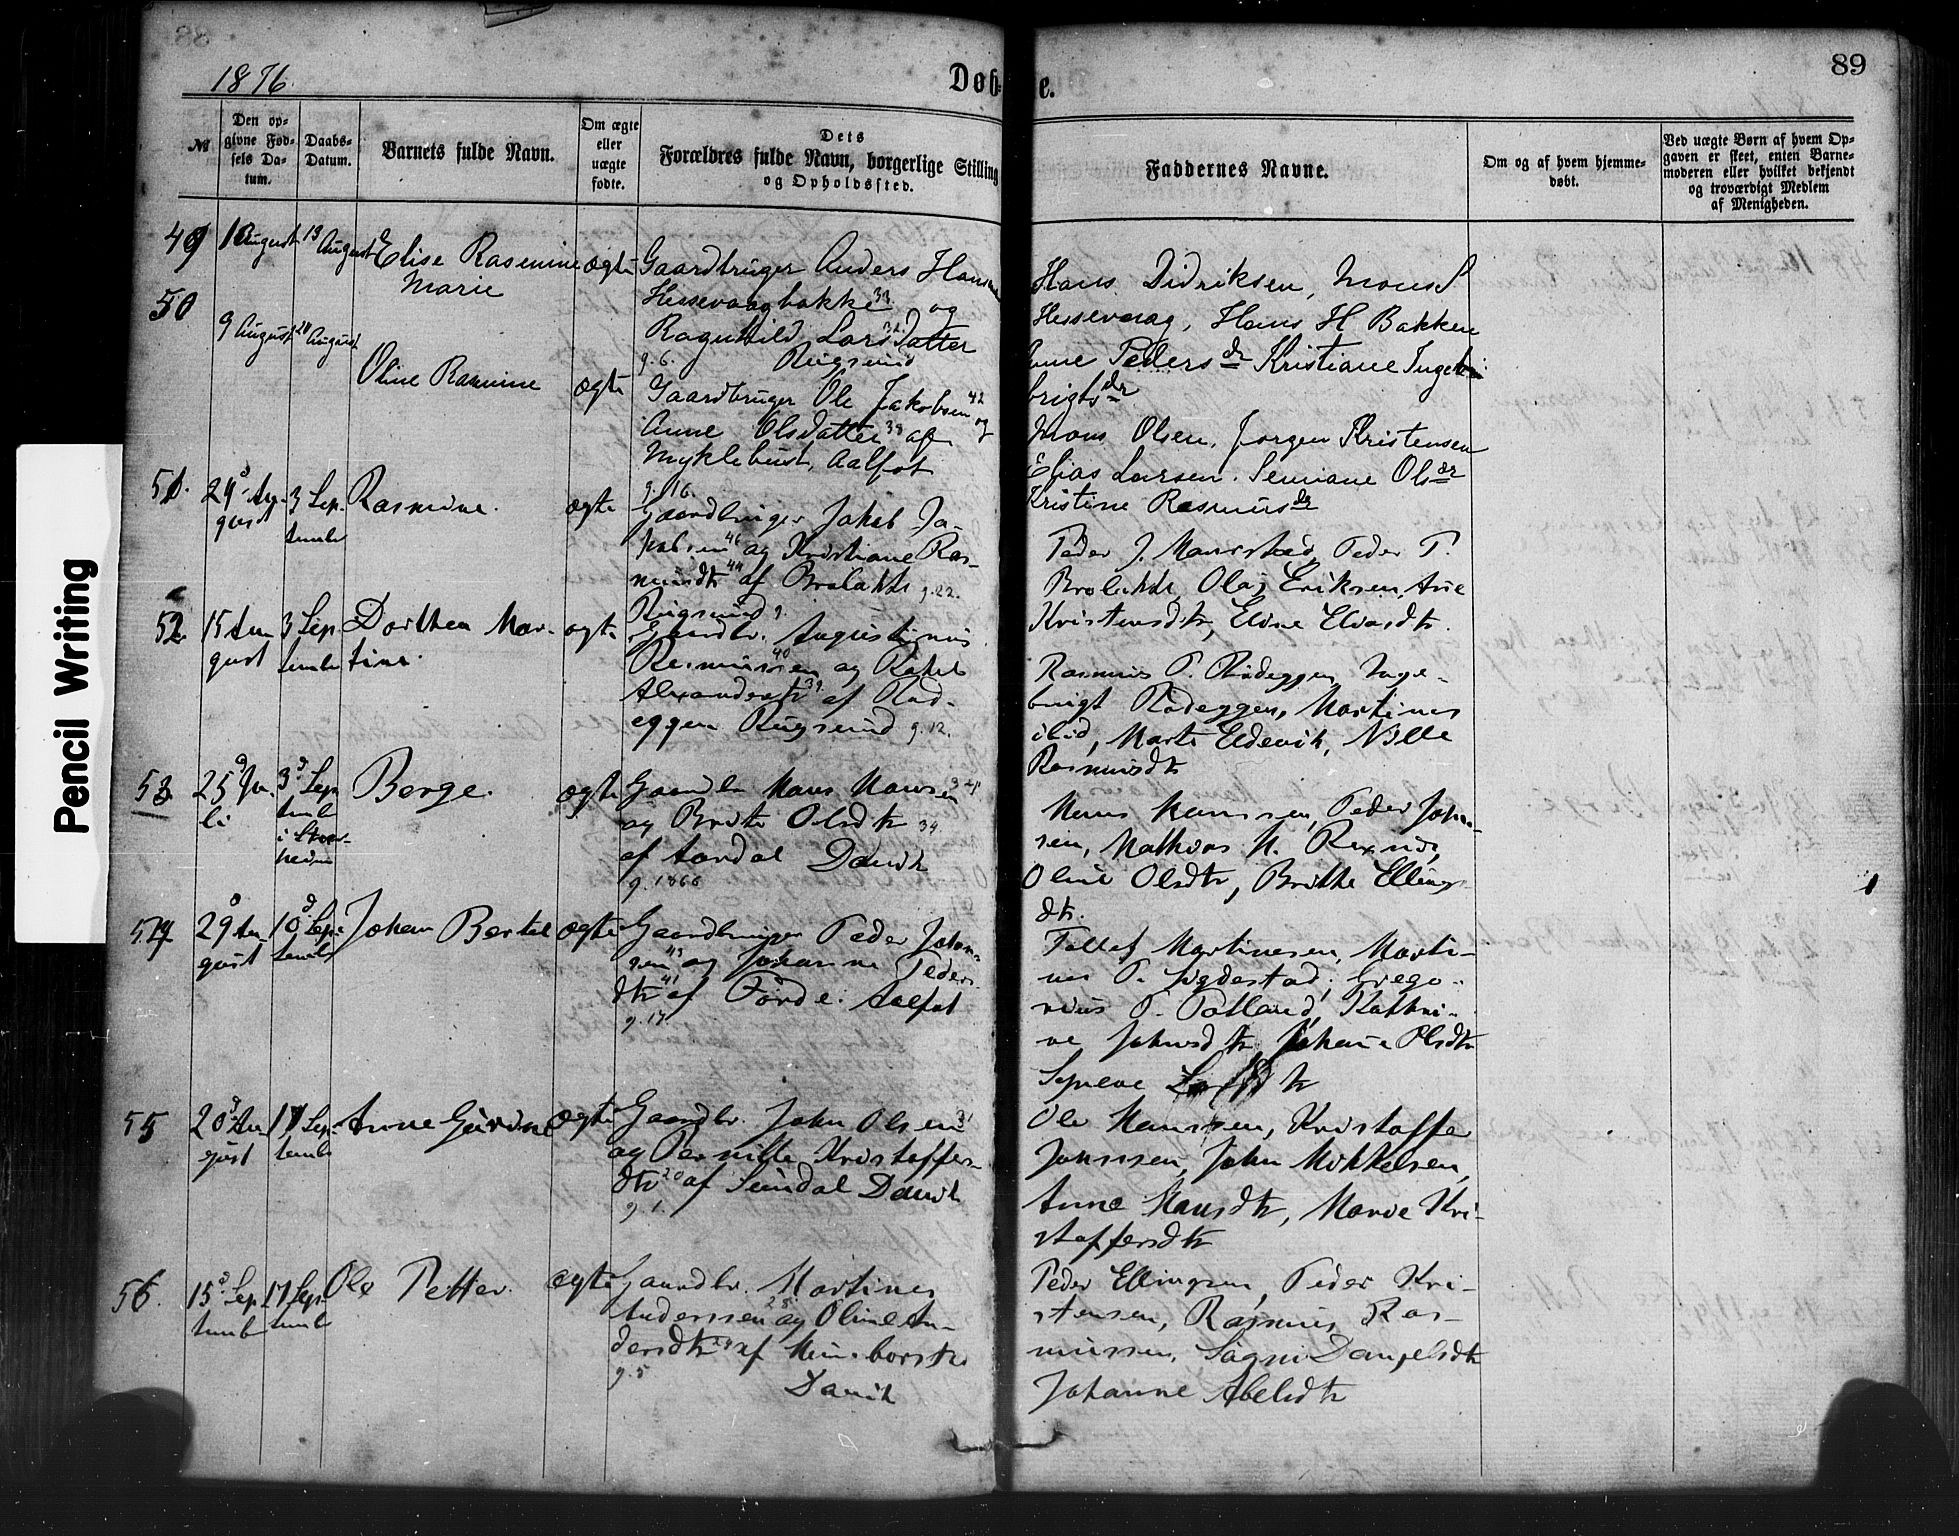 89
1876.
Døb-
e.
№
Den op-
givne Fød-
sels Da-
tum.
Daabs-
Datum.
Barnets fulde Navn.
Om ægte
eller
uægte
fødte.
Dets
Forældres fulde Navn, borgerlige Stilling
og Opholdssted.
Faddernes Navne.
Om og af hvem hjemme-
døbt.
Ved uægte Børn af hvem Op-
gaven er skeet, enten Barne-
moderen eller hvilket bekjendt
og troværdigt Medlem
af Menigheden.
49
August
13 August
Elise Rasmine
Marie
ægte
Gaardbruger Anders Hansen
Hessevaagbakke 33 og
Ragnhild Larsdatter 32
g. 6. Rugsund
Hans Didriksen, Mons
Hessevaag, Hans H Bakken
Anne Pedersdr Kristiane Inge-
brigtsdr
50
9 August
20 August
Oline Rasmine
ægte
Gaardbruger Ole Jakobsen 42 og
Anne Olsdatter 38 af
Myklebust, Aalfot
g. 16.
Mons Olsen, Jørgen Kristensen
Elias Larsen. Olsdr
Kristine Rasmusdr
51.
24d Au-
gust
3 Sep-
tembr
Rasmine.
ægte
Gaardbruger Jakob Ja-
kobsen 46 og Kristiane Ras-
musdtr 44 af g. 22.
Rugsund
Peder J. Maurstad, Peder P.
Olai Eriksen, Ane
Kristensdtr,
52
15 Au-
gust
3 Sep-
tembr
Dorthea Mar-
tine.
ægte
Gaardbr. Augustinus
Rasmussen 40 og Rakel
Alexandersdtr 39 af Rød-
eggen Rugsund g. 12.
Rasmus P. Rødeggen, Inge-
brigt Rødeggen, Martinus
ibid, Marte Eldevik, Nille
Rasmusdtr
53
25d Ju-
li
3d Sep-
tembr
i
Berge.
ægte
Gaardbr Mons Monsen 34
og Brite Olsdtr 34
af Aardal Davik
g. 1866
Mons Monsen, Peder Johan-
sen, Mathias M.
Oline Olsdtr, Brithe Ellings-
dtr.
54
29d Au-
gust
10d Sep-
tembr
Johan Bertel
ægte
Gaardbruger Peder Johan-
sen 43 og Johanne Peders-
dtr 41 af Førde. Aalfot
g. 17.
Tollef Martinesen, Marti-
nus P. Sigdestad, Grego-
rius P. Kathri-
ne Johnsdtr, Johanne Olsdtr
55
20d Au-
gust
17 Sep-
tembr
Anne Gurine
ægte
Gaardbr. John Olsen 31
og Pernille Kristoffers-
dtr 20 af Sundal Davik
g. 1.
Ole Hanssen, Kristoffer
Jonssen, John Mikkelsen,
Anne Hansdtr, Marie Kri-
stoffersdtr
56.
15d Sep-
tembr
17 Sep-
tembr
Ole Petter.
ægte
Gaardbr. Martinus
Anderssen 28 og Oline An-
dersdtr af
g. 5
Davik
Peder Ellingsen, Peder Kri-
stensen, Rasmus Ras-
mussen,
Johanne Abelsdtr
Pencil Writing